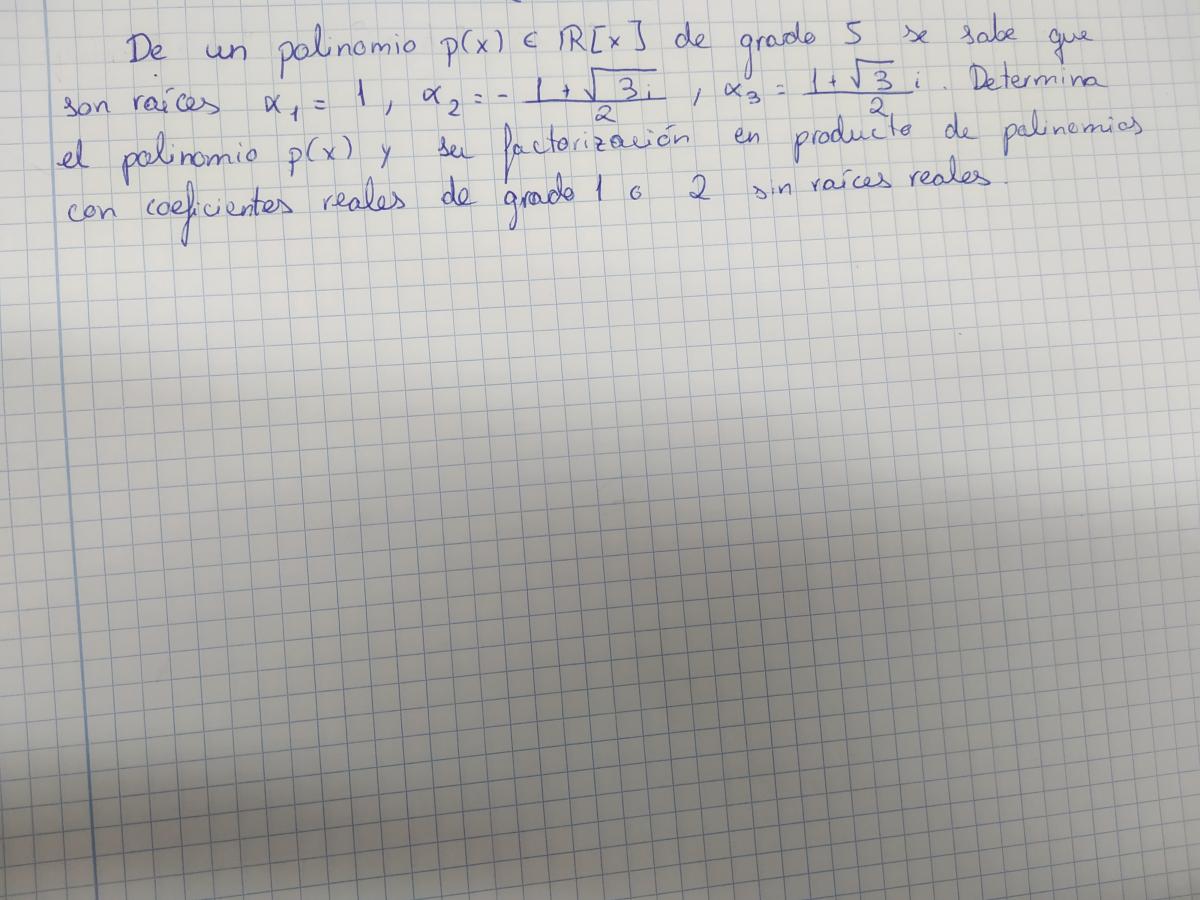 De un polinomio p(x) ∈ ℝ[x] de grado 5 se sabe que
son raíces α₁ = 1, α₂ = - (1+√(3i))/2, α₃ = (1+√3)/2 i. Determina
el polinomio p(x) y su factorización en producto de polinomios
con coeficientes reales de grado 1 o 2 sin raíces reales.